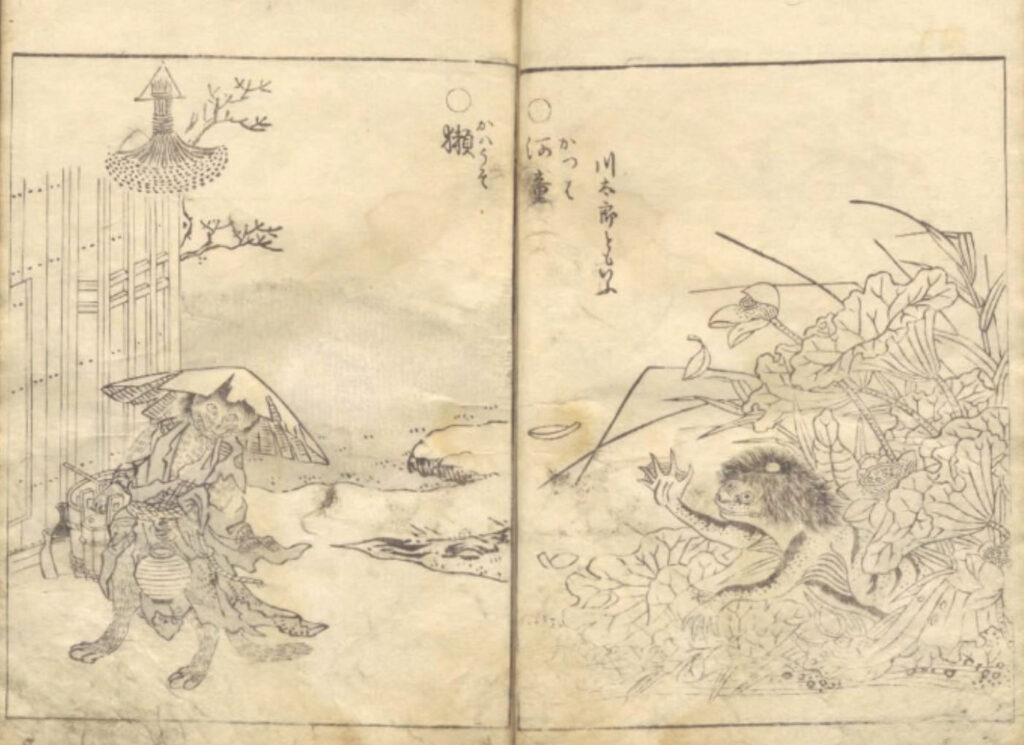 川太郎ともいふ
かつは
○河童
かハうそ
○獺